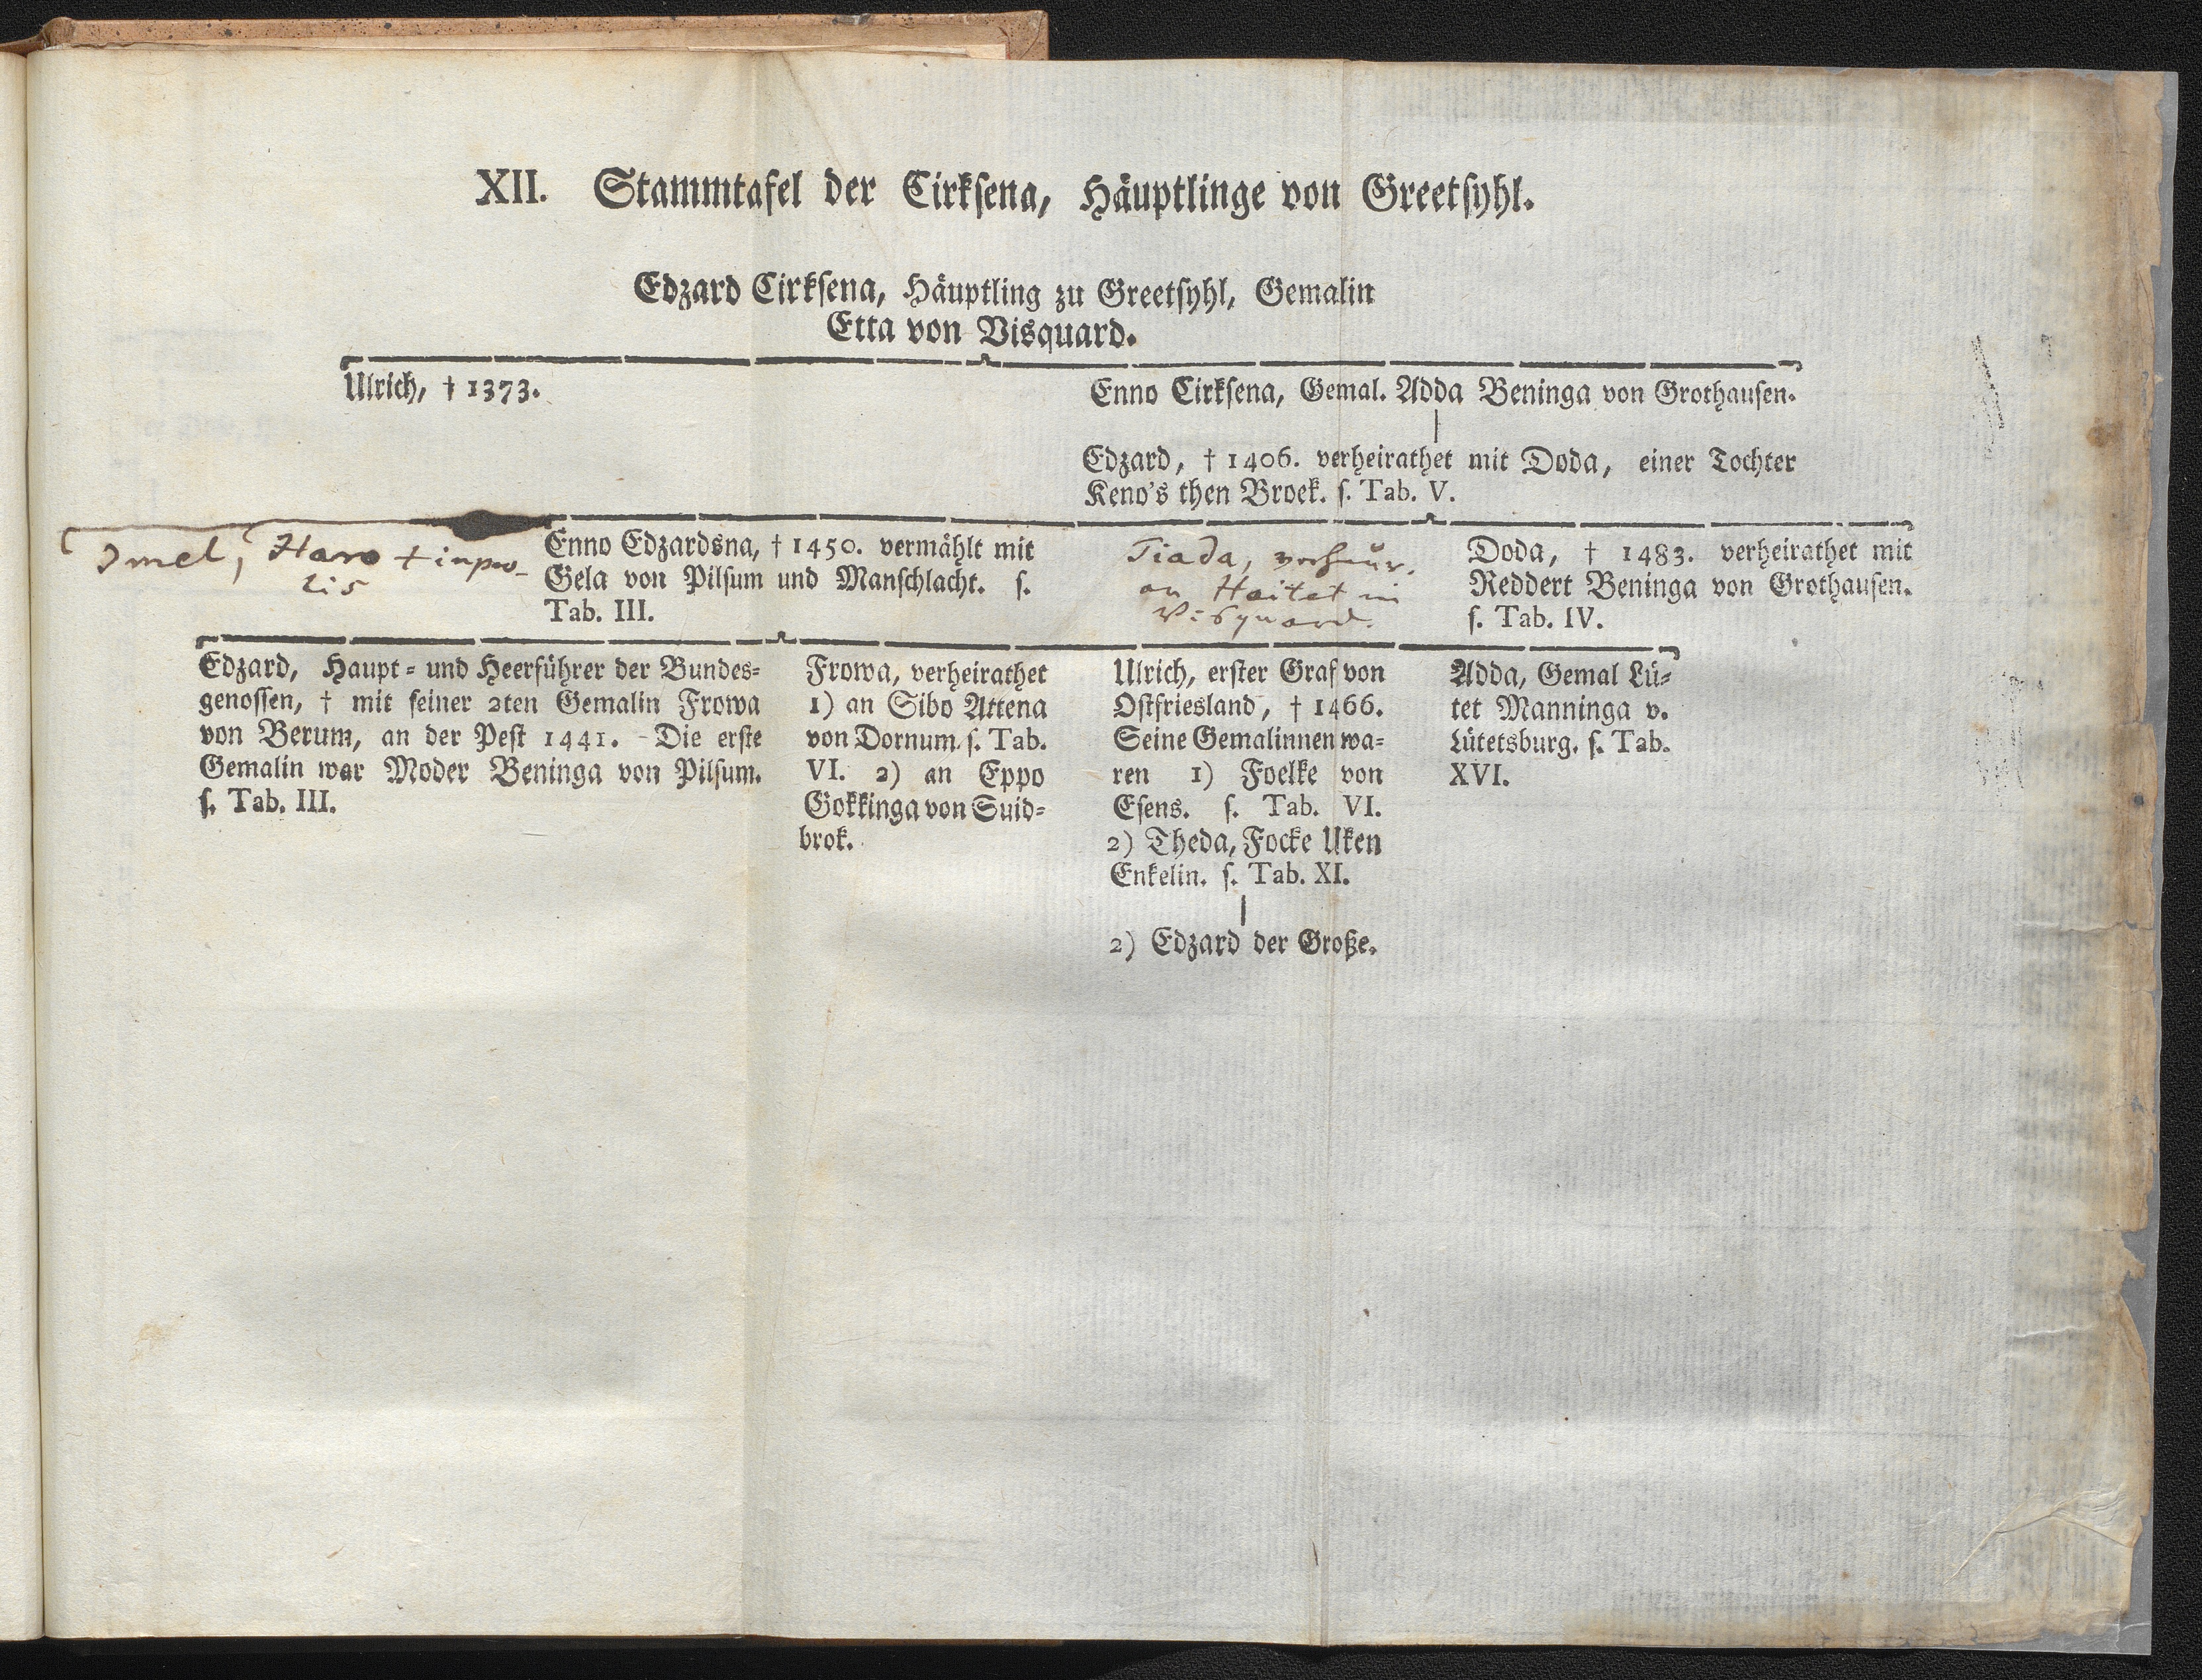 XII. Stammtafel der Cirksena, Häuptlinge von Greetsyhl.
Edzard Cirksena, Häuptling zu Greetsyhl, Gemalin
Etta von Visquard.
Ulrich, † 1373.
Enno Cirksena, Gemal. Adda Beninga von Grothausen.
Edzard, † 1406. verheirathet mit Doda, einer Tochter
Keno's then Broek. s. Tab. V.
Imel, Haro † inpro-
lis
Enno Edzardsna, † 1450. vermählt mit
Gela von Pilsum und Manschlacht. s.
Tab. III.
Tiada, verheur.
an Haitet in
Visquard.
Doda, † 1483. verheirathet mit
Reddert Beninga von Grothausen.
s. Tab. IV.
Edzard, Haupt- und Heerführer der Bundes-
genossen, † mit seiner 2ten Gemalin Frowa
von Berum, an der Pest 1441. - Die erste
Gemalin war Moder Beninga von Pilsum.
s. Tab. III.
Frowa, verheirathet
1) an Sibo Attena
von Dornum. s. Tab.
VI. 2) an Eppo
Gokkinga von Suid-
brok.
Ulrich, erster Graf von
Ostfriesland, † 1466.
Seine Gemalinnen wa-
ren 1) Foelke von
Esens. s. Tab. VI.
2) Theda, Focke Uken
Enkelin. s. Tab. XI.
2) Edzard der Große.
Adda, Gemal Lü-
tet Manninga v.
Lütetsburg. s. Tab.
XVI.